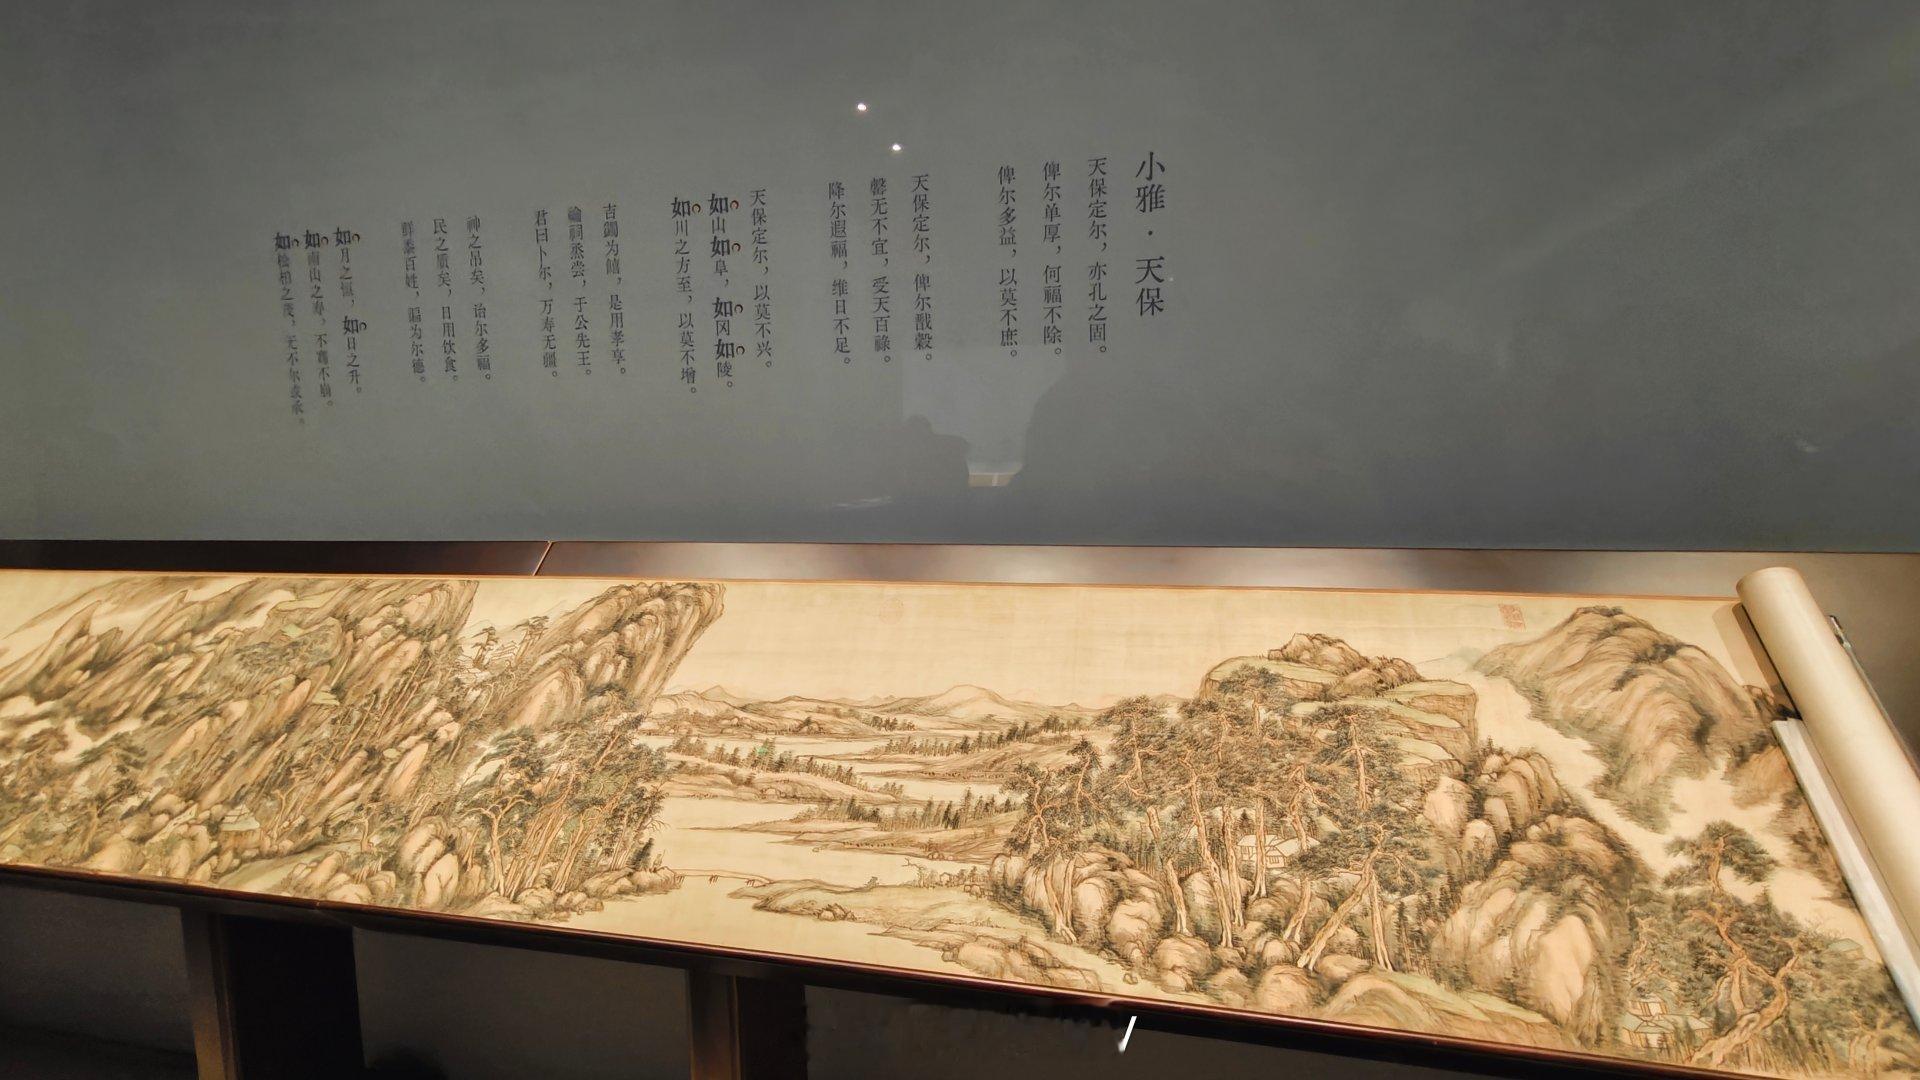 小雅·天保
天保定尔，亦孔之固。
俾尔单厚，何福不除。
俾尔多益，以莫不庶。
天保定尔，俾尔戬穀。
罄无不宜，受天百禄。
降尔遐福，维日不足。
天保定尔，以莫不兴。
如山如阜，如冈如陵。
如川之方至，以莫不增。
吉蠲为饎，是用孝享。
禴祠烝尝，于公先王。
君曰卜尔，万寿无疆。
神之吊矣，诒尔多福。
民之质矣，日用饮食。
群黎百姓，徧为尔德。
如月之恒，如日之升。
如南山之寿，不骞不崩。
如松柏之茂，无不尔或承。